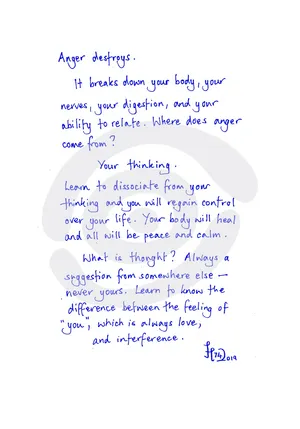 Anger destroys.
It breaks down your body, your
nerves, your digestion, and your
ability to relate. Where does anger
come from?
Your thinking.
Learn to dissociate from your
thinking and you will regain control
over your life. Your body will heal
and all will be peace and calm.
What is thought? Always a
suggestion from somewhere else —
never yours. Learn to know the
difference between the feeling of
"you", which is always love,
and interference.
2019